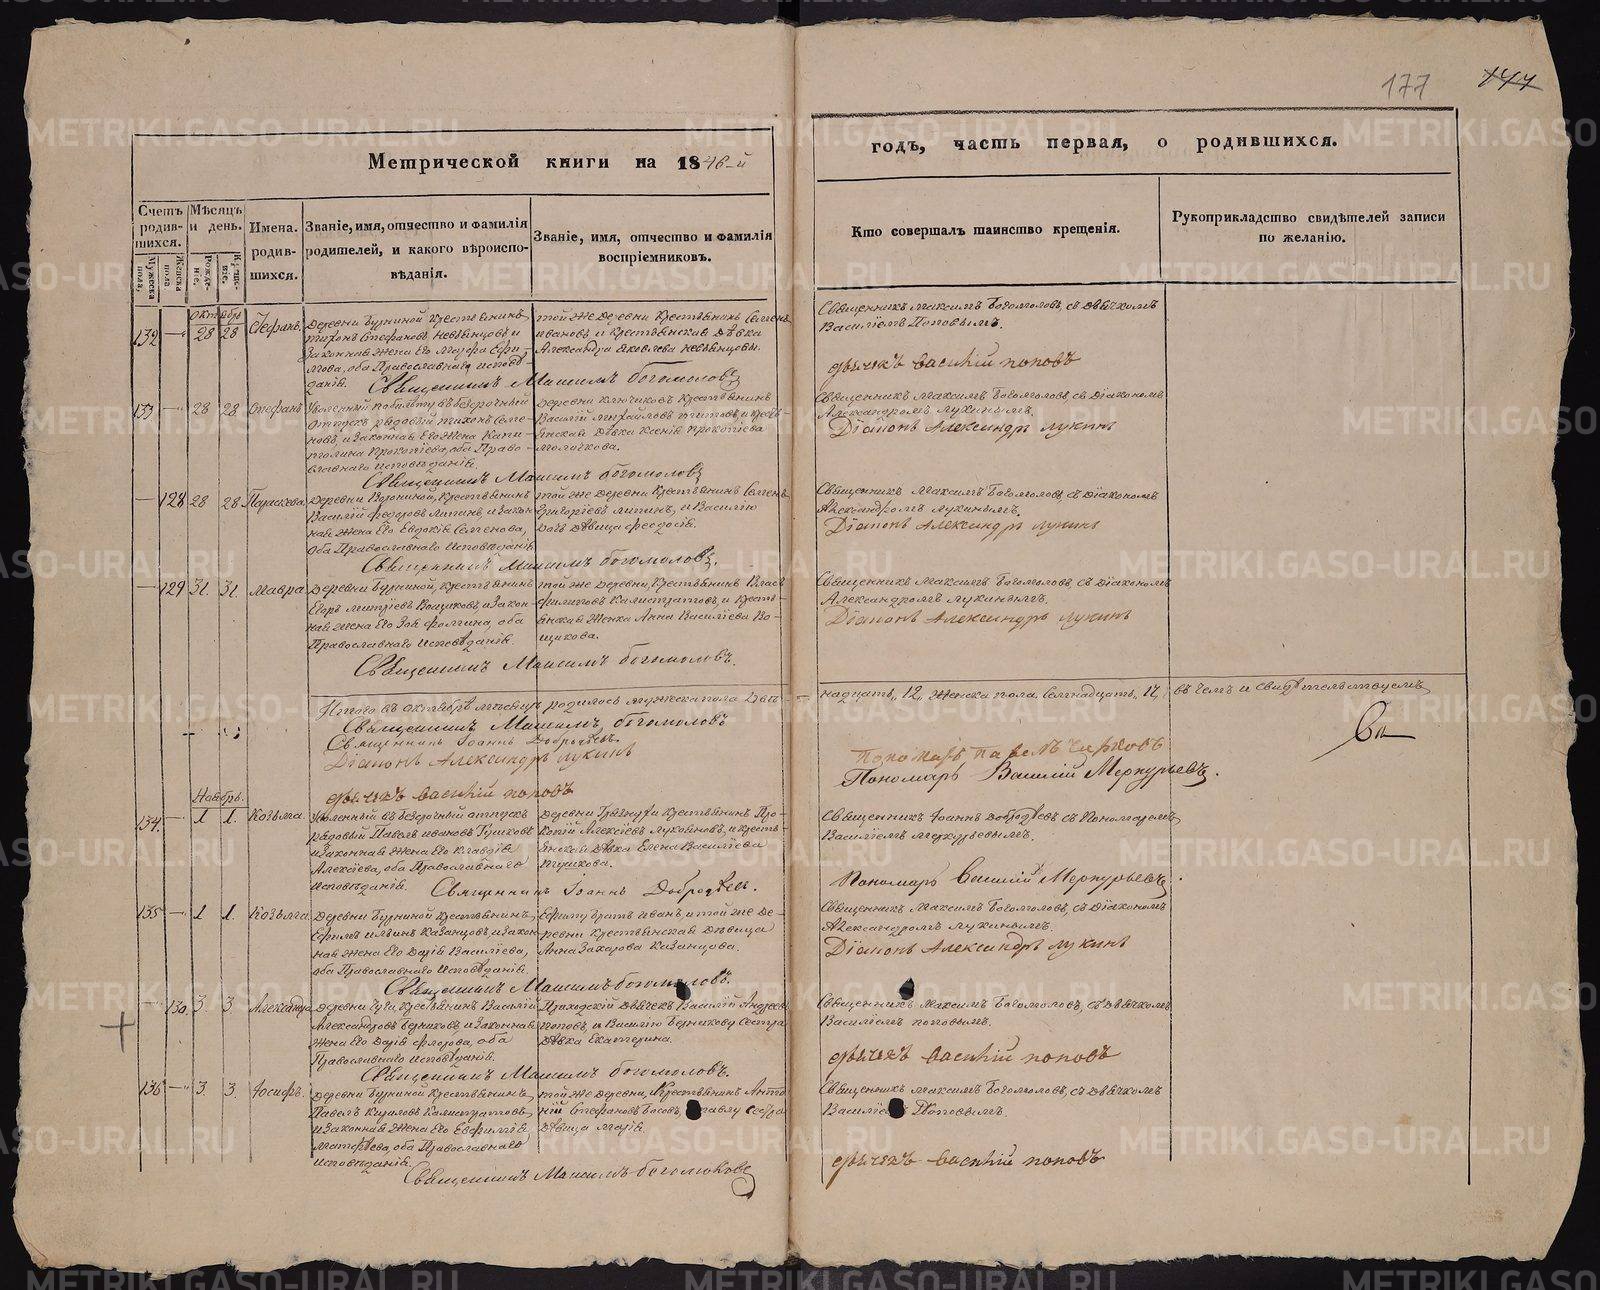 177
Метрической книги на 1846-й
годъ, часть первая, о родившихся.
Счетъ родившихся.
Мужеска пола.
Женска пола
Мѣсяцъ и день.
Рожденіе.
Крещеніе.
Имена родившихся.
Званіе, имя, отчество и фамилія родителей, и какого вѣроисповѣданія.
Званіе, имя, отчество и фамилія воспріемниковъ.
Кто совершалъ таинство крещенія.
Рукоприкладство свидѣтелей записи по желанію.
Октябрь
132 — 28 28 Стефанъ.
Деревни Бурниной Крестьянинъ
Тихонъ Стефановъ Невьянцовъ и
Законная жена Его Марфа Ефи-
мова, оба Православнаго исповѣ-
данія.
той же Деревни Крестьянинъ Семенъ
Ивановъ и Крестьянская Дѣвка
Александра Яковлева Невьянцовы.
Священникъ Максимъ Богомоловъ
Священникъ Максимъ Богомоловъ, съ Дьячкомъ
Василіемъ Поповымъ.
Дьячекъ Василій Поповъ
133 — 28 28 Стефанъ
Уволенный по билету въ безсрочный
отпускъ рядовый Тихонъ Семе-
новъ, и Законная Его жена Капи-
толина Прокопіева, оба Право-
славнаго исповѣданія.
Деревни Ключиковъ Крестьянинъ
Василій Михайловъ Титовъ, и Кресть-
янская Дѣвка Ксенія Прокопіева
Молочкова.
Священникъ Максимъ Богомоловъ
Священникъ Максимъ Богомоловъ, съ Діакономъ
Александромъ Лукинымъ.
Діаконъ Александръ Лукинъ
— 128 28 28 Параскева.
Деревни Ворониной, Крестьянинъ
Василій Федоровъ Липинъ, и Закон-
ная жена Его Евдокія Семенова,
оба Православнаго Исповѣданія
той же Деревни Крестьянинъ Семенъ
Григоріевъ Липинъ, и Василію
Дочь Дѣвица Феодосія.
Священникъ Максимъ Богомоловъ.
Священникъ Максимъ Богомоловъ, съ Діакономъ
Александромъ Лукинымъ.
Діаконъ Александръ Лукинъ
— 129 31. 31. Мавра
Деревни Бурниной, Крестьянинъ
Егоръ Митріевъ Вощиковъ, и Закон-
ная жена Его Зоя Фомина, оба
Православнаго Исповѣданія
той же Деревни, Крестьянинъ Власъ
Филиповъ Калистратовъ, и Кресть-
янская Женка Анна Василіева Во-
щикова.
Священникъ Максимъ Богомоловъ.
Священникъ Максимъ Богомоловъ, съ Діакономъ
Александромъ Лукинымъ.
Діаконъ Александръ Лукинъ
Итого въ октябрѣ мѣсяцѣ родилось мужеска пола Двѣ-
надцать, 12, женска пола, Семнадцать, 17, въ чемъ и свидѣтельствуемъ
Священникъ Максимъ Богомоловъ
Священникъ Іоаннъ
Діаконъ Александръ Лукинъ
Дьячекъ Василій Поповъ
Пономарь Павелъ
Пономарь Василій Меркурьевъ.
Ноябрь.
134. — 1 1. Козьма.
Уволенный въ безсрочный отпускъ
рядовый Павелъ Ивановъ
и Законная жена Его Клавдія
Алексіева, оба Православнаго
Исповѣданія.
Деревни Крестьянинъ Про-
копій Алексіевъ Лукояновъ, и Кресть-
янская Дѣвка Елена Василіева
Священникъ Іоаннъ
Священникъ Іоаннъ съ Пономаремъ
Василіемъ Меркурьевымъ.
Пономарь Василій Меркурьевъ.
135 — 1 1. Козьма
Деревни Бурниной Крестьянинъ
Ефимъ Ильинъ Казанцовъ, и Закон-
ная жена Его Дарія Василіева,
оба Православнаго Исповѣданія.
Ефиму братъ Иванъ, и той же Де-
ревни Крестьянская Дѣвица
Анна Захарова Казанцова.
Священникъ Максимъ Богомоловъ.
Священникъ Максимъ Богомоловъ, съ Діакономъ
Александромъ Лукинымъ.
Діаконъ Александръ Лукинъ
— 130. 3 3 Александра
Деревни Крестьянинъ Василій
Александровъ Берниковъ, и Законная
жена Его Дарія Флорова, оба
Православнаго Исповѣданія.
Приходскій Дьячекъ Василій Андреевъ
Поповъ, и Василію Берникову Сестра
Дѣвка Екатерина.
Священникъ Максимъ Богомоловъ.
Священникъ Максимъ Богомоловъ, съ Дьячкомъ
Василіемъ Поповымъ.
Дьячекъ Василій Поповъ
136 — 3 3. Іосифъ.
Деревни Бурниной Крестьянинъ
Павелъ Кириловъ Калистратовъ
и Законная жена Его Евфимія
Матфѣева, оба Православнаго
исповѣданія.
той же Деревни, Крестьянинъ Анто-
ній Стефановъ Босовъ, и Павлу Сестра
Дѣвица Марія.
Священникъ Максимъ Богомоловъ
Священникъ Максимъ Богомоловъ, съ Дьячкомъ
Василіемъ Поповымъ.
Дьячекъ Василій Поповъ
METRIKI.GASO-URAL.RU